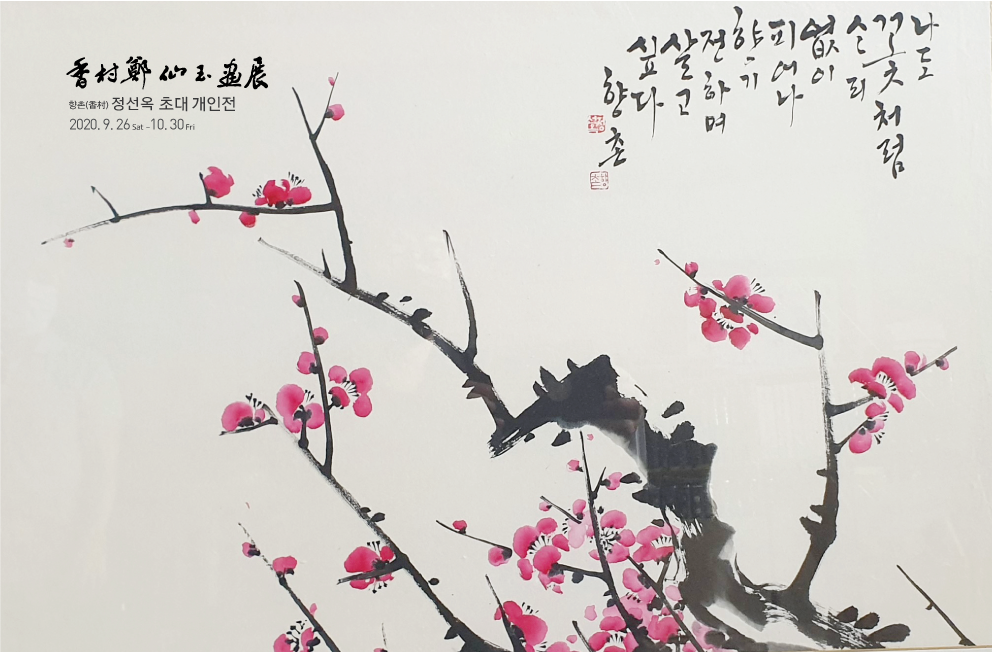 香村 鄭仙玉 畵展
향촌(香村) 정선옥 초대 개인전
2020. 9. 26 Sat - 10. 30 Fri
나도
꽃처럼
소리
없이
피어나
향기
전하며
살고
싶다
향촌